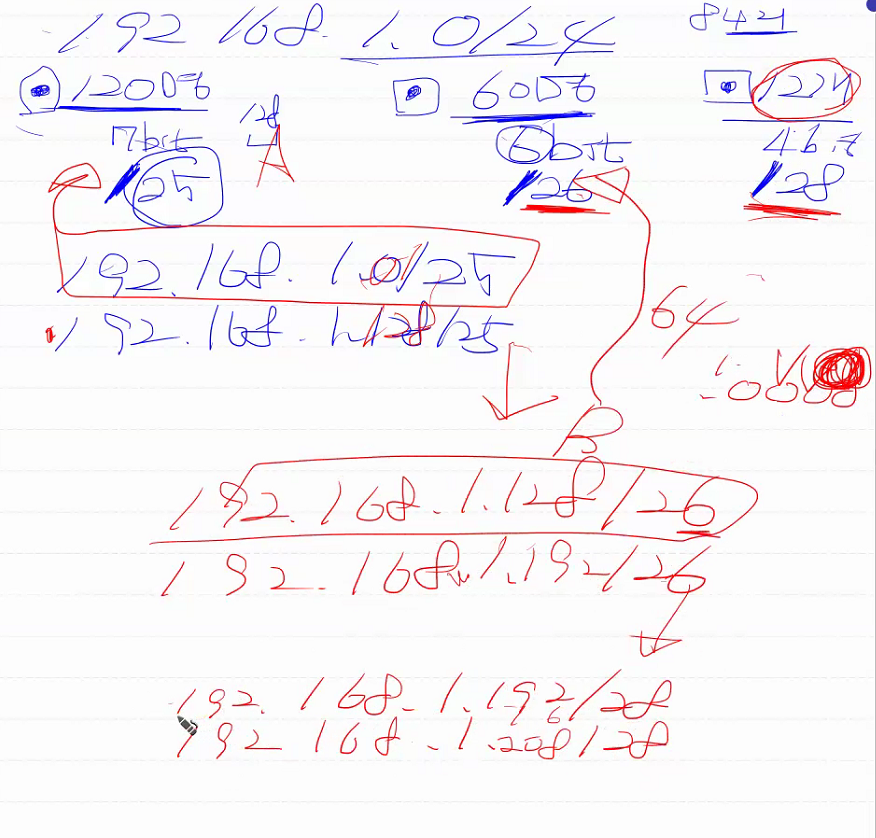 192 168. 1.0/24
8421
120대 60대 12대
7bit 128 6bit 4bit
/25 A /26 /28
192.168.1.0/25
192.168.1.128/25
64
B
192.168.1.128/26
192.168.1.192/26
192.168.1.192/28
6
192 168.1.208/28